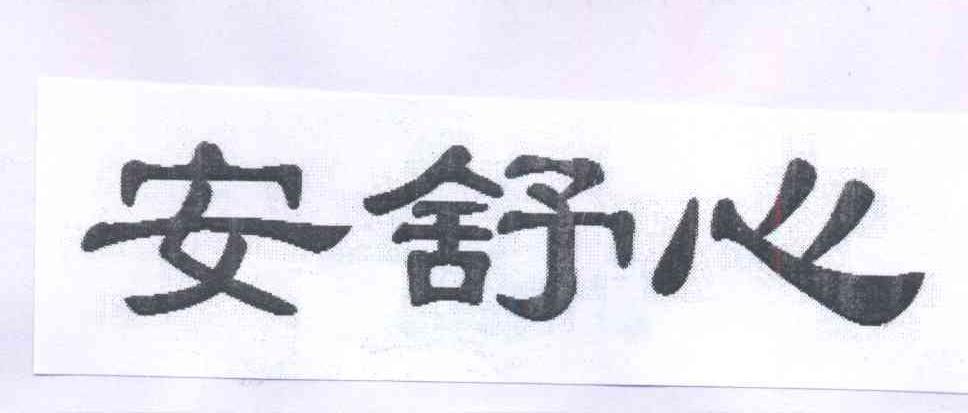 安舒心